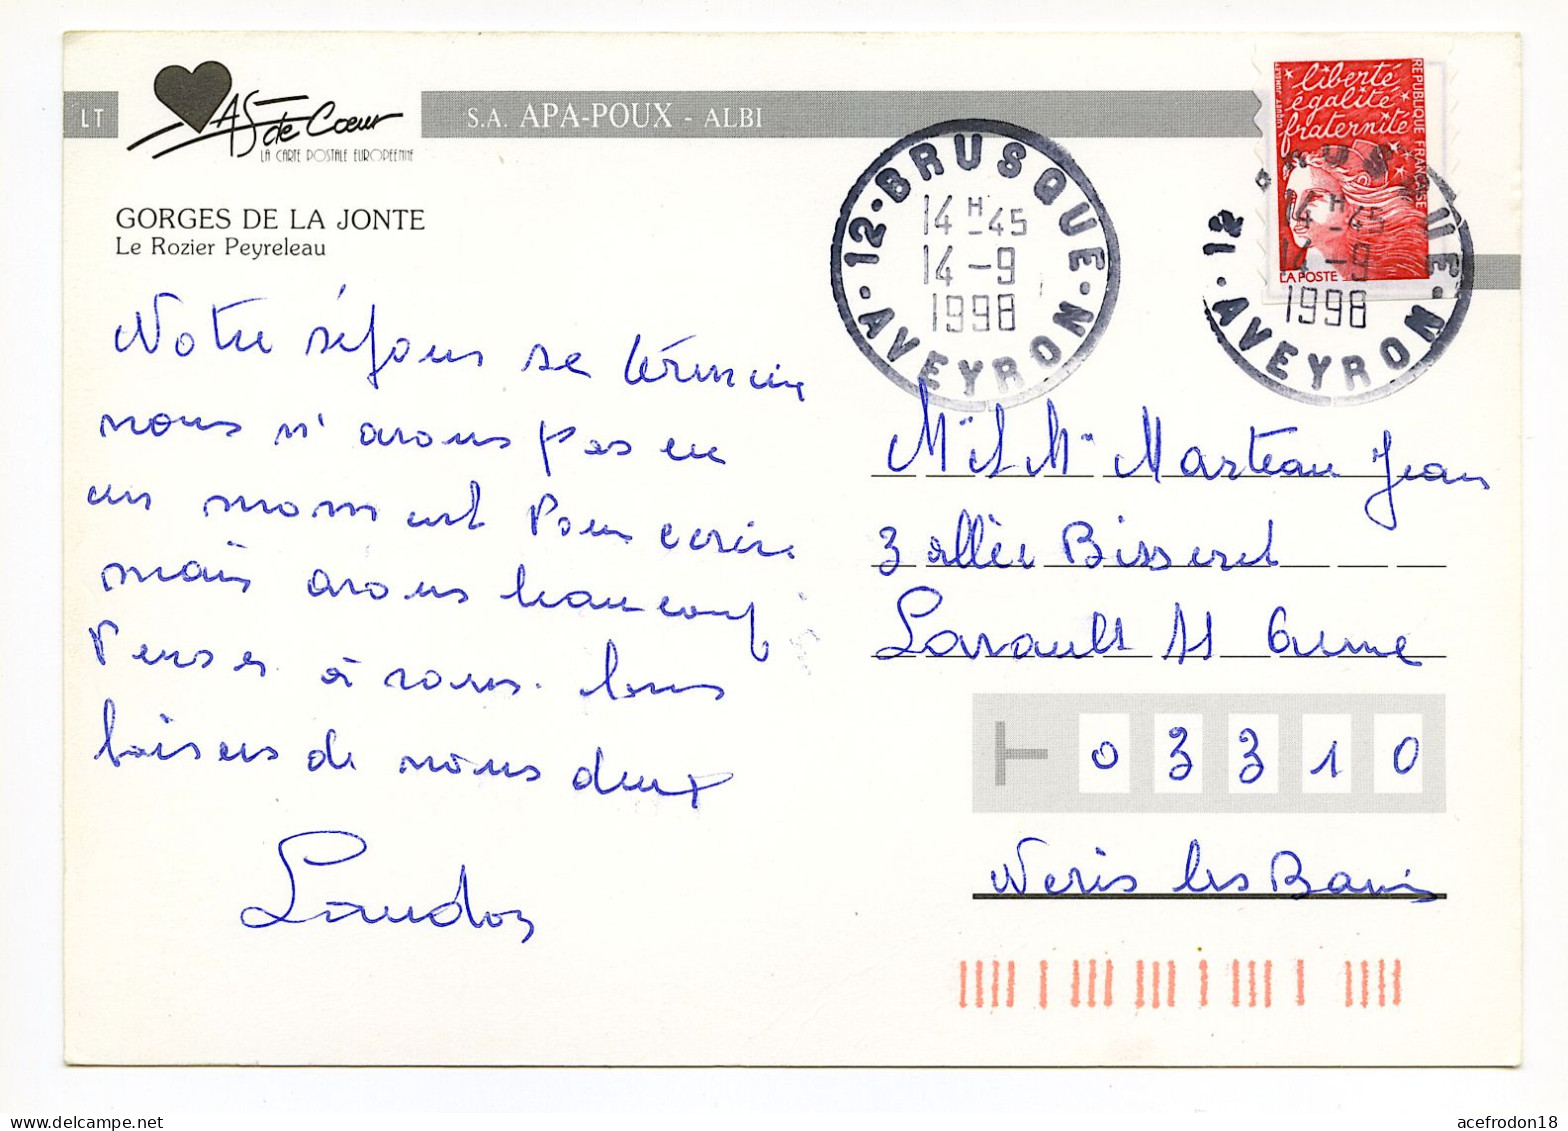 LT
AS de Cœur
LA CARTE POSTALE EUROPEENNE
S.A. APA-POUX - ALBI
GORGES DE LA JONTE
Le Rozier Peyreleau
Notre séjour se termine
nous n'avons pas eu
un moment pour écrire
mais avons beaucoup
penser à vous. bons
baisers de nous deux
12 · BRUSQUE · AVEYRON
14 H 45
14 - 9
1998
liberté
égalité
fraternité
REPUBLIQUE FRANÇAISE
LA POSTE
12 · BRUSQUE · AVEYRON
14 H 45
14 - 9
1998
Marteau Jean
3 allée Bisseret
03310
Neris les Bains
acefrodon18